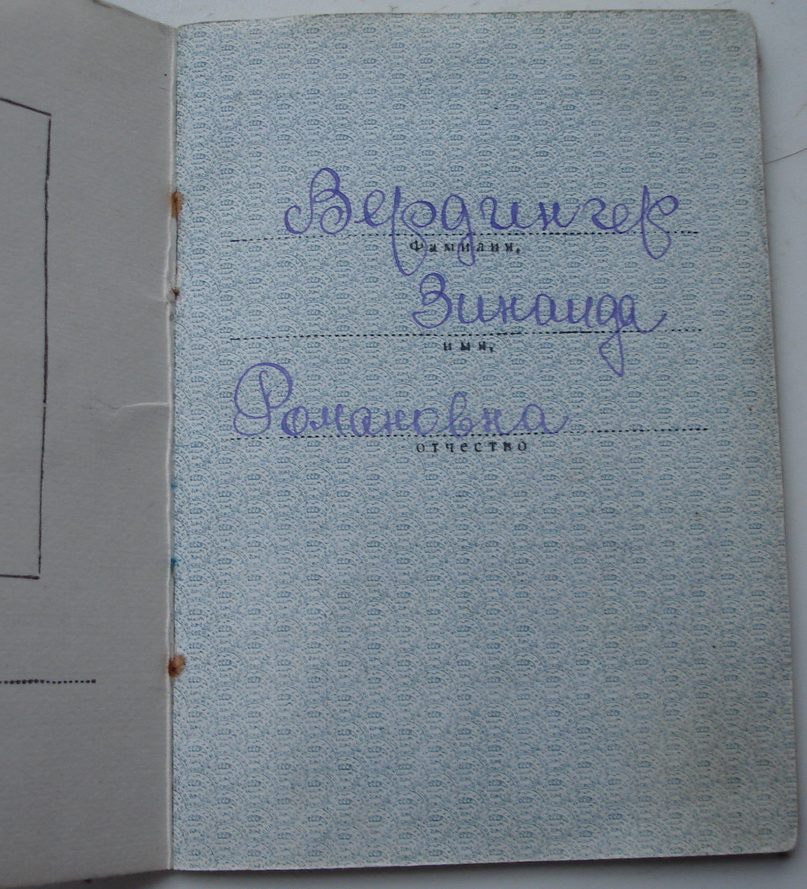 Вердингер
Фамилия,
Зинаида
имя,
Романовна
отчество